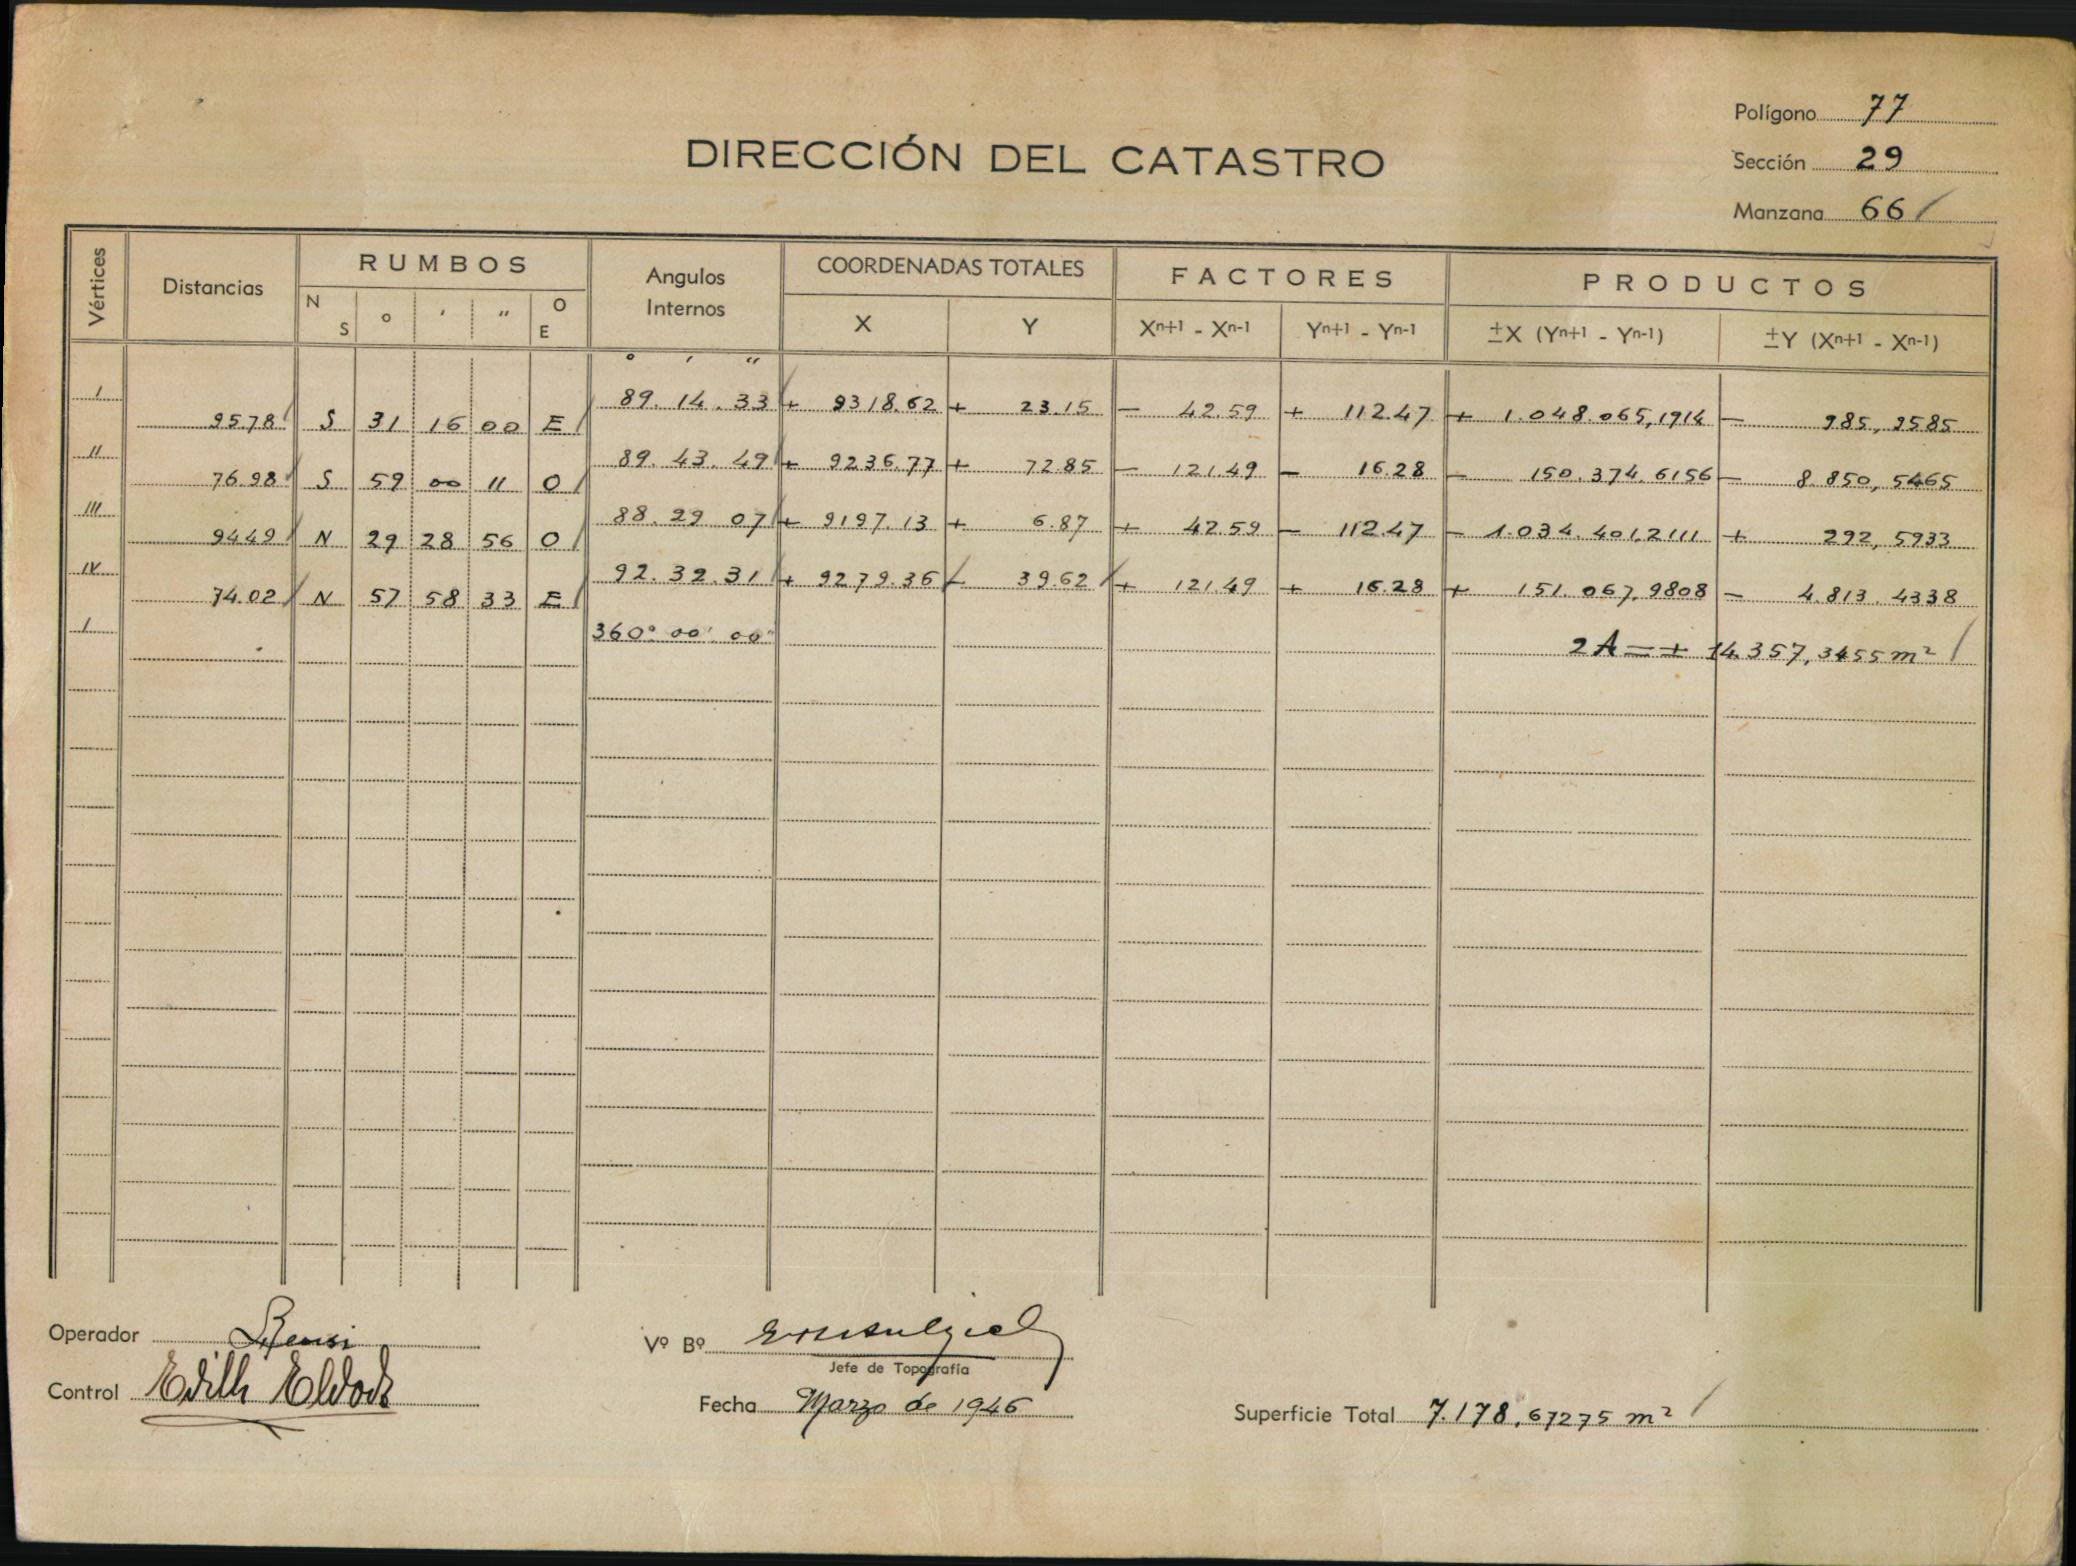 Polígono 77
DIRECCIÓN DEL CATASTRO
Sección 29
Manzana 66
Vértices Distancias RUMBOS Angulos Internos COORDENADAS TOTALES FACTORES PRODUCTOS
N S ° ' " O E X Y Xn+1 - Xn-1 Yn+1 - Yn-1 ±X (Yn+1 - Yn-1) ±Y (Xn+1 - Xn-1)
° ' "
I 89.14.33 + 9318.62 + 23.15 — 42.59 + 112.47 + 1.048.065,1914 — 985,9585
95.78 S 31 16 00 E
II 89.43.49 + 9236.77 + 72.85 — 121.49 — 16.28 — 150.374.6156 — 8.850,5465
76.98 S 59 00 11 O
III 88.29 07 + 9197.13 + 6.87 + 42.59 — 112.47 — 1.034.401,2111 + 292,5933
94.49 N 29 28 56 O
IV 92.32.31 + 9279.36 — 39.62 + 121.49 + 16.28 + 151.067,9808 — 4.813.4338
74.02 N 57 58 33 E
I 360° 00' 00" 2A = + 14.357,3455 m²
Operador
Vº Bº
Jefe de Topografía
Control Edith
Fecha Marzo de 1946
Superficie Total 7.178,67275 m²